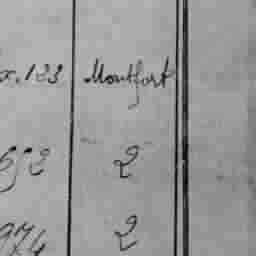 x. 123 Montfort
652 2
974 2